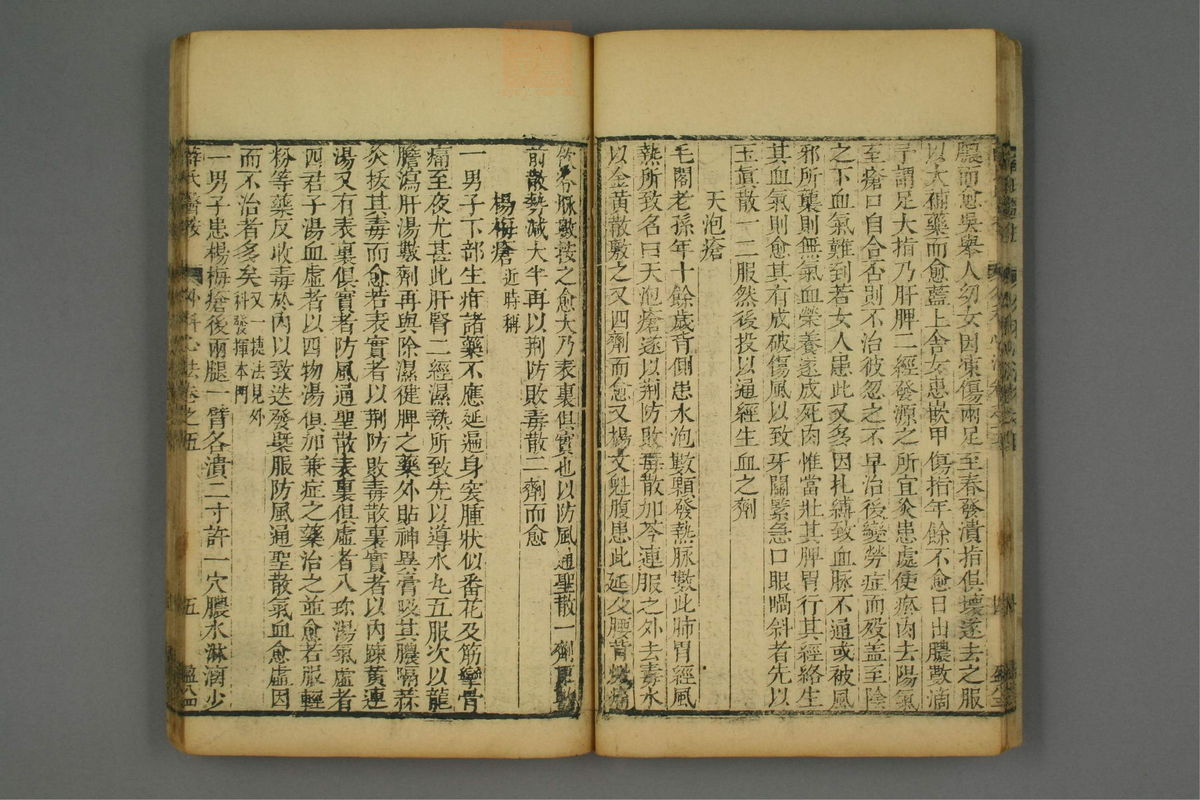 膿而愈吳舉人幼女因凍傷兩足至春發潰指俱壞遂去之服
以大補藥而愈藍上舍女患嵌甲傷指年餘不愈日出膿數滴
予謂足大指乃肝脾二經發源之所宜灸患處使瘀肉去陽氣
至瘡口自合否則不治彼忽之不早治後變勞症而歿蓋至陰
之下血氣難到若女人患此又多因扎縛致血脉不通或被風
邪所襲則無氣血榮養遂成死肉惟當壯其脾胃行其經絡生
其血氣則愈其有成破傷風以致牙關緊急口眼喎斜者先以
玉眞散一二服然後投以通經生血之劑
天泡瘡
毛閣老孫年十餘歲背側患水泡數顆發熱脉數此肺胃經風
熱所致名曰天泡瘡遂以荆防敗毒散加芩連服之外去毒水
以金黃散敷之又四劑而愈又楊文魁腹患此延及腰背焮痛
飲冷脉數按之愈大乃表裏俱實也以防風通聖散一劑更敷
前散勢減大半再以荆防敗毒散二劑而愈
楊梅瘡近時稱
一男子下部生疳諸藥不應延遍身突腫狀似番花及筋攣骨
痛至夜尤甚此肝腎二經濕熱所致先以導水丸五服次以龍
膽瀉肝湯數劑再與除濕健脾之藥外貼神異膏吸其膿隔蒜
灸拔其毒而愈若表實者以荆防敗毒散裏實者以內踈黃連
湯又有表裏俱實者防風通聖散表裏俱虛者八珍湯氣虛者
四君子湯血虛者以四物湯俱加兼症之藥治之並愈若服輕
粉等藥反收毒於內以致迭發棄服防風通聖散氣血愈虛因
而不治者多矣又一捷法見外科發揮本門
一男子患楊梅瘡後兩腿一臂各潰二寸許一穴膿水淋漓少
薛氏醫按 外科心法卷之五 五